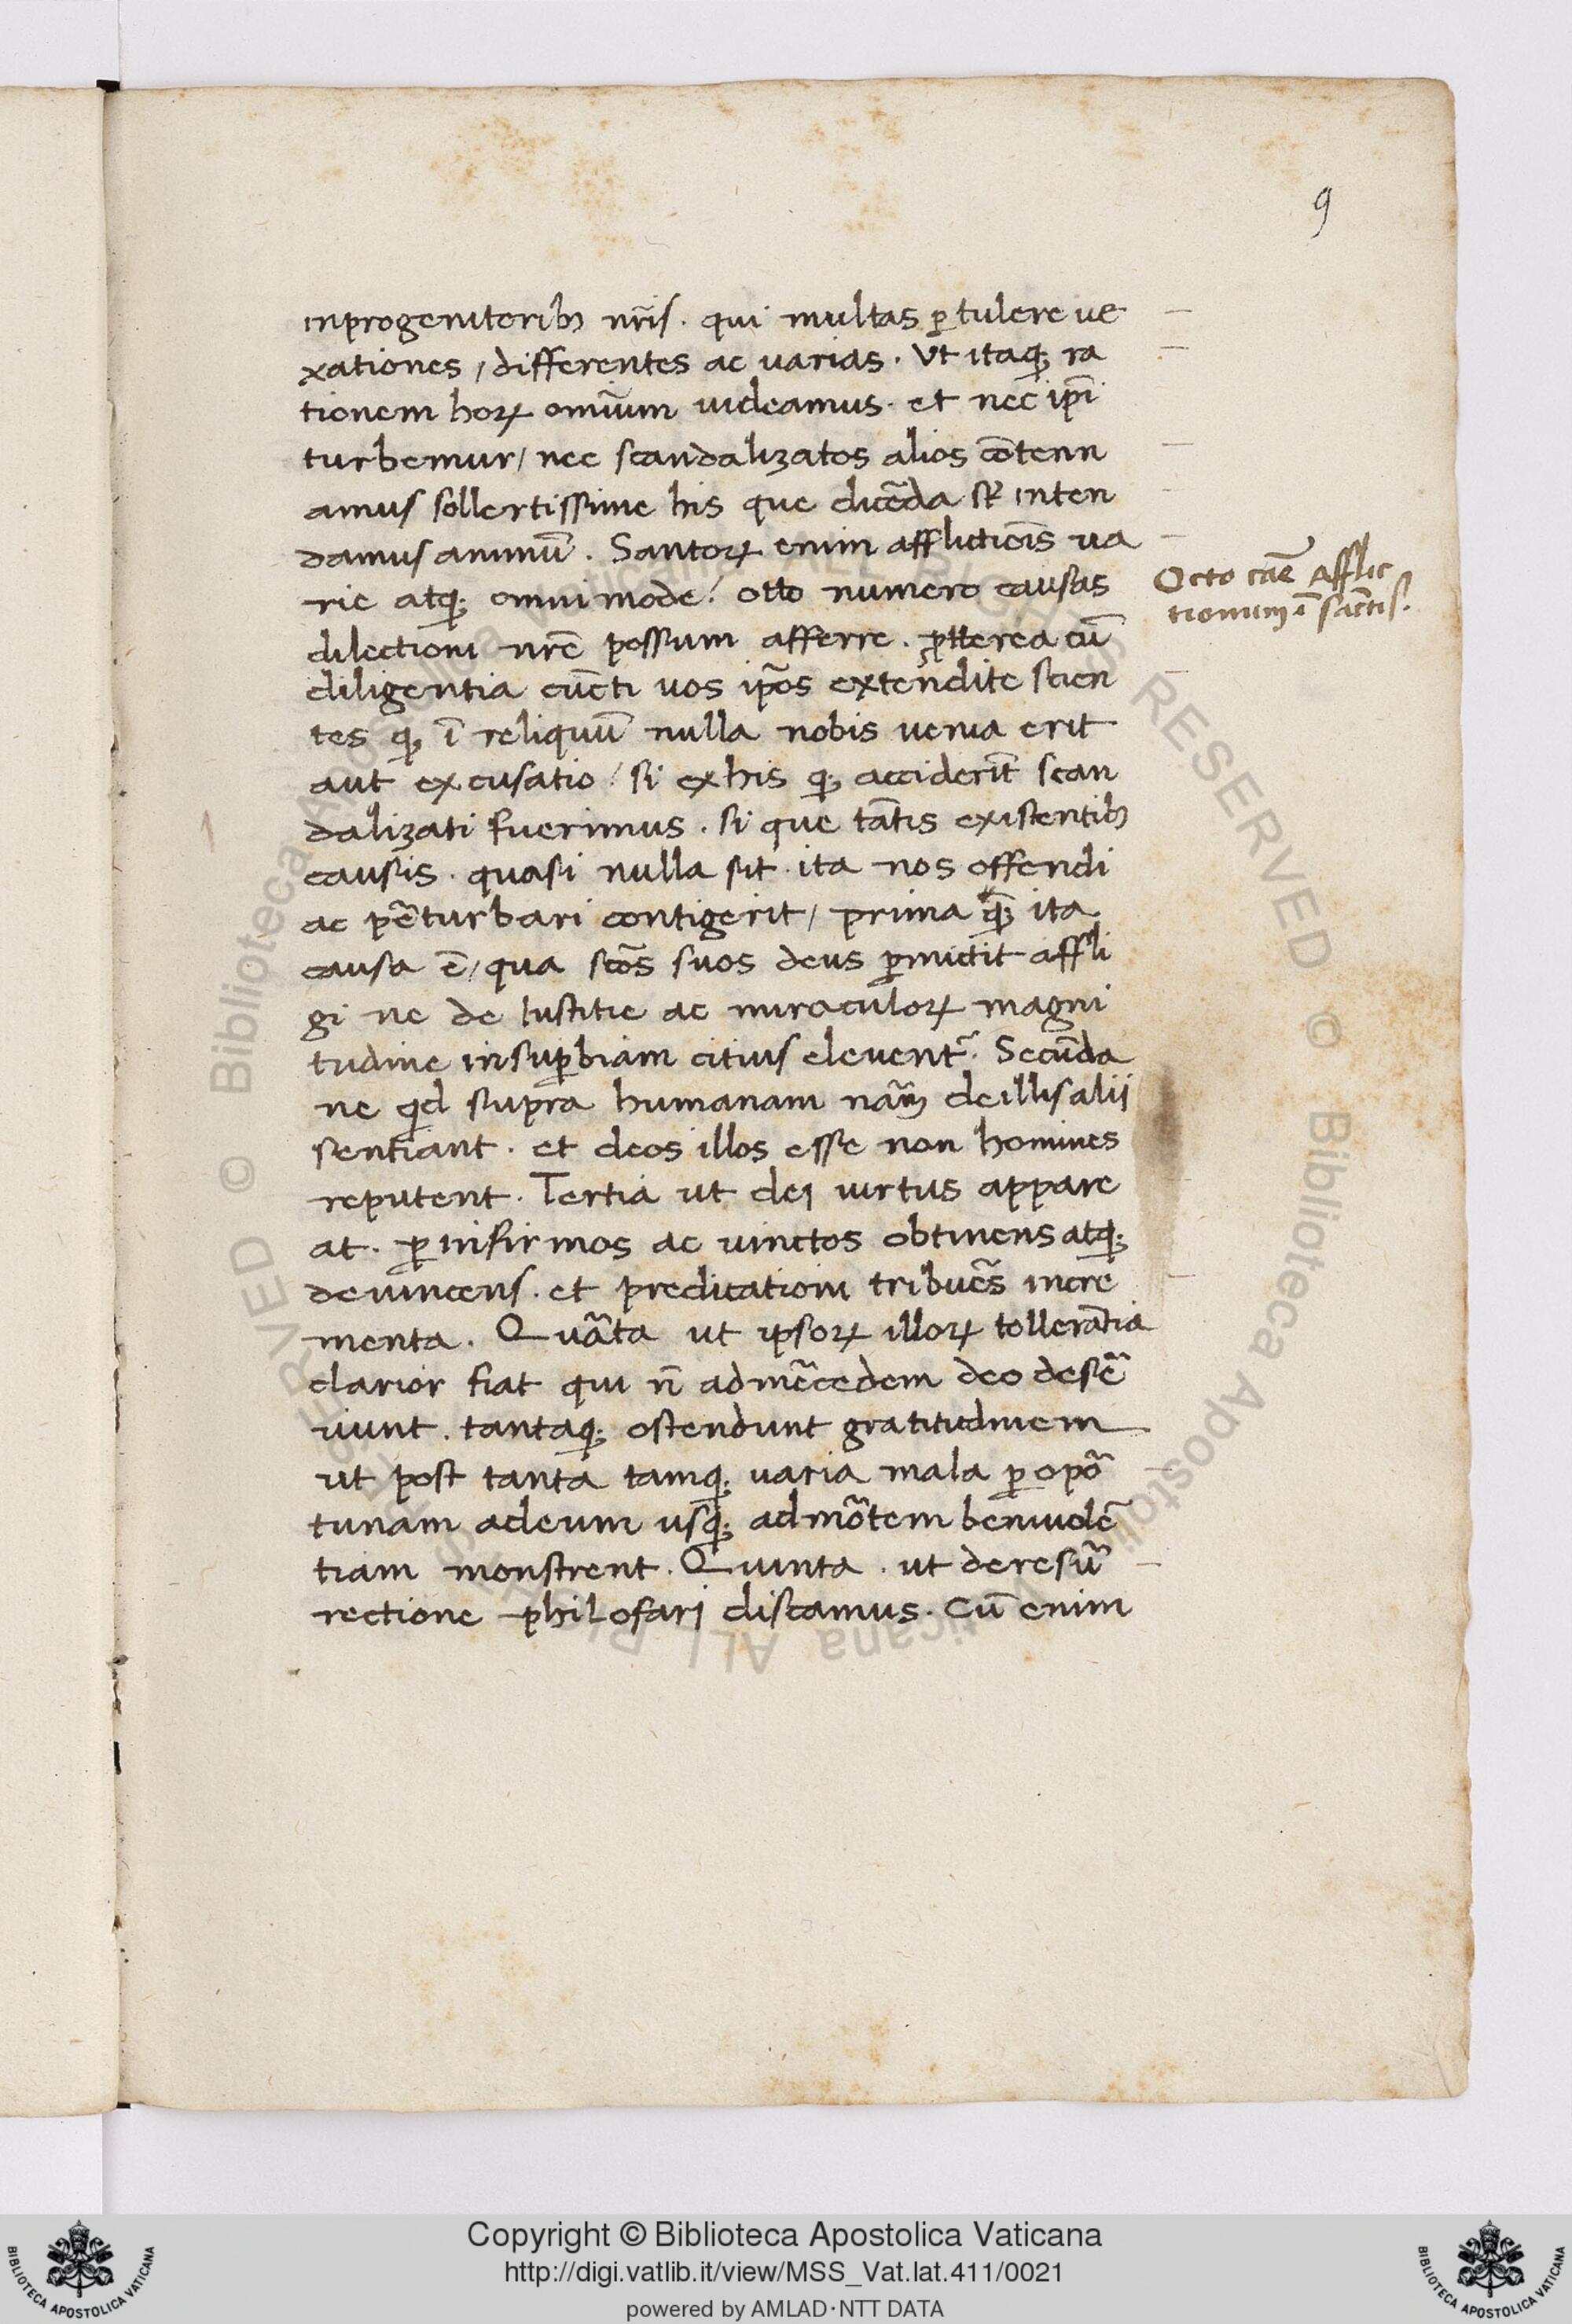 9
inprogenitorib; nr̃is. qui multas ꝑtulere ue
xationes / differentes ac varias. Vt itaq; ra
tionem hoꝝ omīum uideamus. et nec ip̄i
turbemur / nec scandalizatos alios cōtenn
amus sollertissime his que dicēda st̄ inten
damus animū. Santoꝝ enim afflictiōis ua
rie atq; omnimode / otto numero causas
dilectioni nr̄e possum afferre. ꝓtterea cū
diligentia cūcti vos ip̄os extendite scien
tes q; ī reliquū nulla nobis venia erit
aut excusatio / si ex his q; acciderīt scan
dalizati fuerimus. si que tātis existentib;
causis. quasi nulla sit. ita nos offendi
ac pērturbari contigerit / prima q̄; ita
causa ē / qua sc̄os suos deus ꝑmictit affli
gi ne de Iustitie ac miraculoꝝ magni
tudine insuꝑbiam citius eleventr̃. Secūda
ne qd supra humanam nãm de illis alii
sentiant. et deos illos esse non homines
reputent. Tertia ut dei uirtus appare
at. ꝑ infirmos ac vinctos obtinens atq;
devincens. et predicationi tribuēs incre
menta. Quãta ut ipsoꝝ illoꝝ tollerãtia
clarior fiat qui ñ admẽcedem deo desẽ
viunt. tantaq; ostendunt gratitudinem
ut post tanta tamq; varia mala ꝑ opõ
tunam adeum usq; admõtem beniuolē
tiam monstrent. Quinta. ut deresũ
rectione philosari discamus. Cū enim
Octo cāe Afflic
tionum ī sāctis.
Copyright © Biblioteca Apostolica Vaticana
http://digi.vatlib.it/view/MSS_Vat.lat.411/0021
powered by AMLAD·NTT DATA
BIBLIOTECA APOSTOLICA VATICANA
BIBLIOTECA APOSTOLICA VATICANA